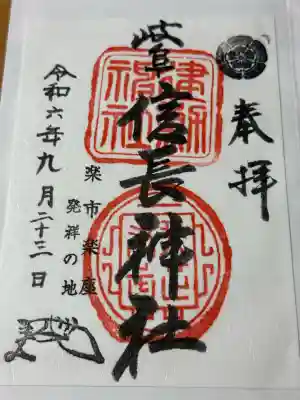 奉拝
岐阜信長神社
楽市楽座
発祥の地
令和六年九月二十三日